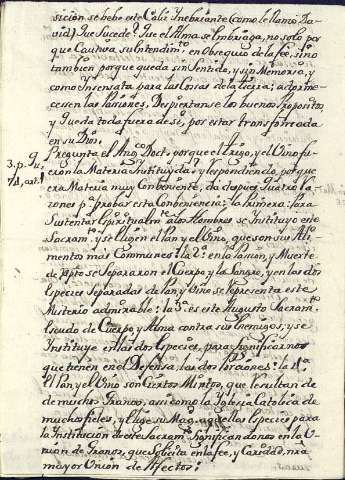 sicion se bebe este Caliz Ynebriante (como le llamó Da-
vid) Que Sucede? Que el Alma se Embriaga, no solo por
que Cautiva su intendim.to en Obsequio de la fee, sino
tambien porque queda sin Sentido, y sin Memoria, y
como Ynsensata para las Cosas de la tierra; adorme-
cessen las Pasiones, Despiertanse los buenos Propositos
y Queda toda fuera de si, por estar transformada
en su Dios.
3. p. Qu.
74, art. 1
Pregunta el Ang.co Doct.r porque el trigo, y el Vino fu
eron la Materia Ynstituyda, y respondiendo, porque
era Materia muy Conbeniente, da despues quatro ra-
zones p.a probar esta Conbeniencia: la Primera: Para
Sustentar Espiritualm.te a los Hombres se Ynstituyo este
Sacram.to y se Eligen el Pan y el Vino, que son sus Ali
mentos mas Communes: la 2.a en la Passion, y Muerte
de Xpto se Separaron el Cuerpo y la Sangre, y en las dos
Especies Separadas de Pan, y Vino, se representa este
Misterio admirable: la 3.a es este Augusto Sacram.to
Escudo de Cuerpo y Alma contra sus Enemigos, y se
Ynstituye en las dos Especies, para Significarnos
que tienen en el Defensa, las dos porciones: la 4.a
El Pan, y el Vino son Ciertos Mixtos, que resultan de
de muchos Granos, assi como la Yglesia Catolica de
muchos fieles, y Elige su Mag.d aquellas Especies para
la Ynstitucion de este Sacram.to Significandonos en la U-
nion de Granos, que Solicita en la fee, y Caridad, nra
mayor Union de Afectos: